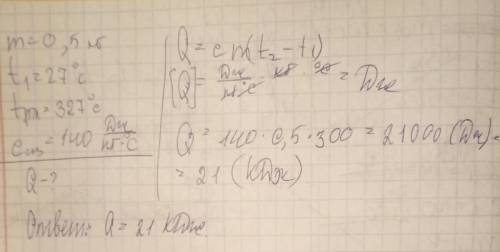 m = 0,5 кг
t₁ = 27°C
tпл = 327°C
c = 140 Дж/кг·°C
Q - ?
Q = cm(t₂ - t₁)
[Q] = Дж/кг·°C · кг · °C = Дж
Q = 140 · 0,5 · 300 = 21000 (Дж) =
= 21 (кДж)
Ответ: Q = 21 кДж.